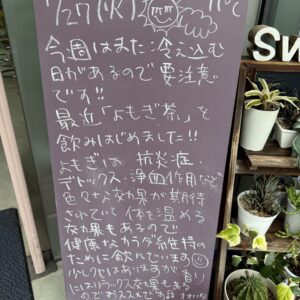 1/27(火)
今週はまた冷え込む
日があるので要注意
です!!
最近「よもぎ茶」を
飲みはじめました!!
よもぎは 抗炎症・
デトックス・浄血作用など
色々な効果が期待
されていて体を温める
効果もあるので
健康なカラダ維持の
ために飲んでいます
少しクセはありますが香り
にリラックス効果もある
のでおススメですよ
Sw